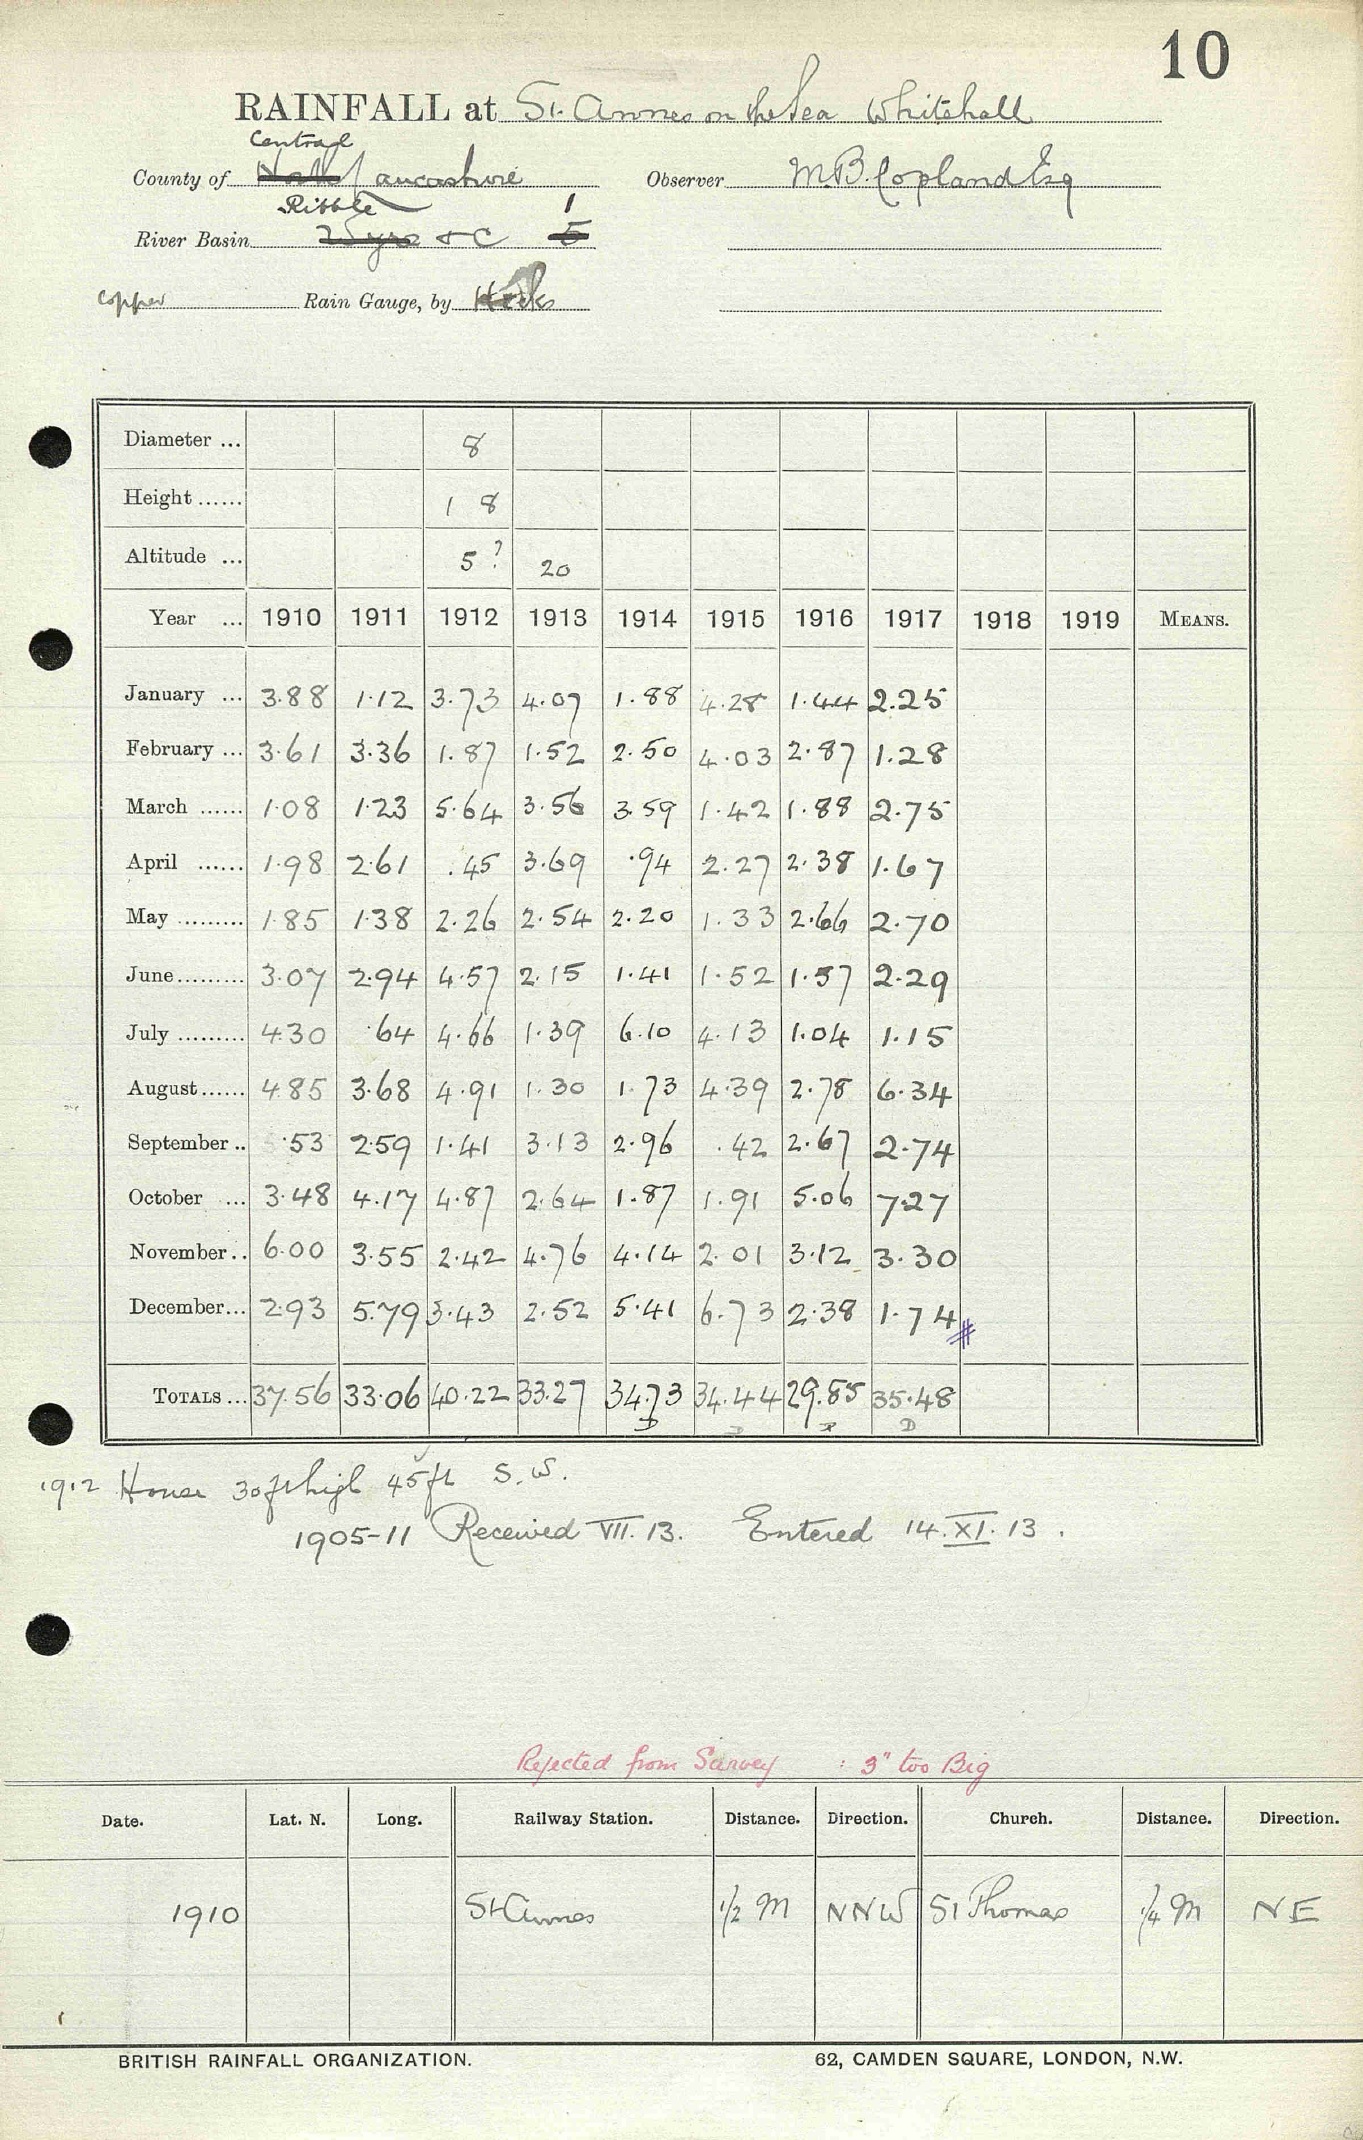 10
RAINFALL at St. Annes on the Sea Whitehall
Central
County of North Lancashire Observer M.B. Copland Esq
Ribble 1
River Basin Wyre & C 5
copper Rain Gauge, by Hicks
Diameter ... 8
Height ...... 1 8
Altitude ... 5? 20
Year ... 1910 1911 1912 1913 1914 1915 1916 1917 1918 1919 MEANS.
January ... 3.88 1.12 3.73 4.07 1.88 4.28 1.44 2.25
February ... 3.61 3.36 1.87 1.52 2.50 4.03 2.87 1.28
March ...... 1.08 1.23 5.64 3.56 3.59 1.42 1.88 2.75
April ...... 1.98 2.61 .45 3.69 .94 2.27 2.38 1.67
May ......... 1.85 1.38 2.26 2.54 2.20 1.33 2.66 2.70
June......... 3.07 2.94 4.57 2.15 1.41 1.52 1.57 2.29
July ......... 4.30 .64 4.66 1.39 6.10 4.13 1.04 1.15
August...... 4.85 3.68 4.91 1.30 1.73 4.39 2.78 6.34
September .. .53 2.59 1.41 3.13 2.96 .42 2.67 2.74
October ... 3.48 4.17 4.87 2.64 1.87 1.91 5.06 7.27
November .. 6.00 3.55 2.42 4.76 4.14 2.01 3.12 3.30
December... 2.93 5.79 3.43 2.52 5.41 6.73 2.38 1.74 #
TOTALS ... 37.56 33.06 40.22 33.27 34.73 34.44 29.85 35.48
D D D D
1912 House 30ft high 45ft S.W.
1905-11 Received VII. 13. Entered 14. XI. 13.
Rejected from Survey : 3" too Big
Date. Lat. N. Long. Railway Station. Distance. Direction. Church. Distance. Direction.
1910 St Annes 1/2 M NNW St Thomas 1/4 M NE
BRITISH RAINFALL ORGANIZATION. 62, CAMDEN SQUARE, LONDON, N.W.